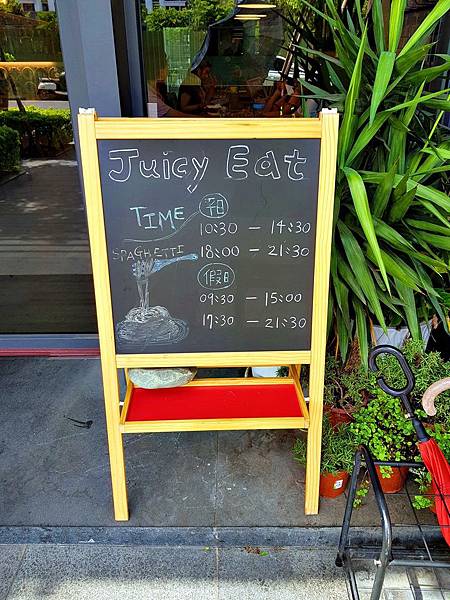 Juicy Eat
TIME 平日
10:30 - 14:30
SPAGHETTI 18:00 - 21:30
假日
09:30 - 15:00
17:30 - 21:30